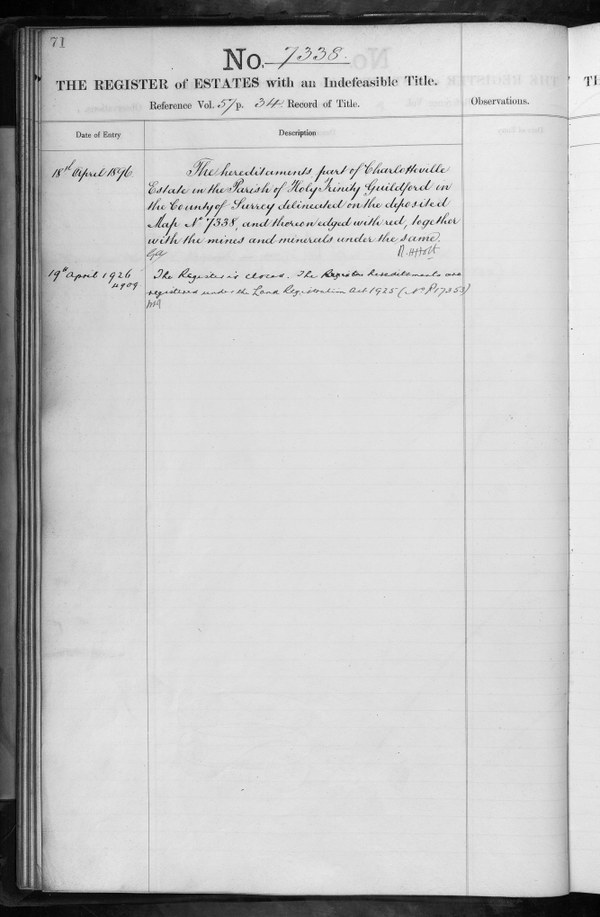 71
No. 7338.
THE REGISTER of ESTATES with an Indefeasible Title.
Reference Vol. 57 p. 34 Record of Title.
Observations.
Date of Entry
Description
18th April 1896.
The hereditaments part of Charlotteville
Estate in the Parish of Holy Trinity Guildford in
the County of Surrey delineated on the deposited
Map No 7338, and thereon edged with red, together
with the mines and minerals under the same.
R. H. Holt
19th April 1926
4909
The Register is closed. The Hereditaments are
registered under the Land Registration Act 1925 (No P.17353)